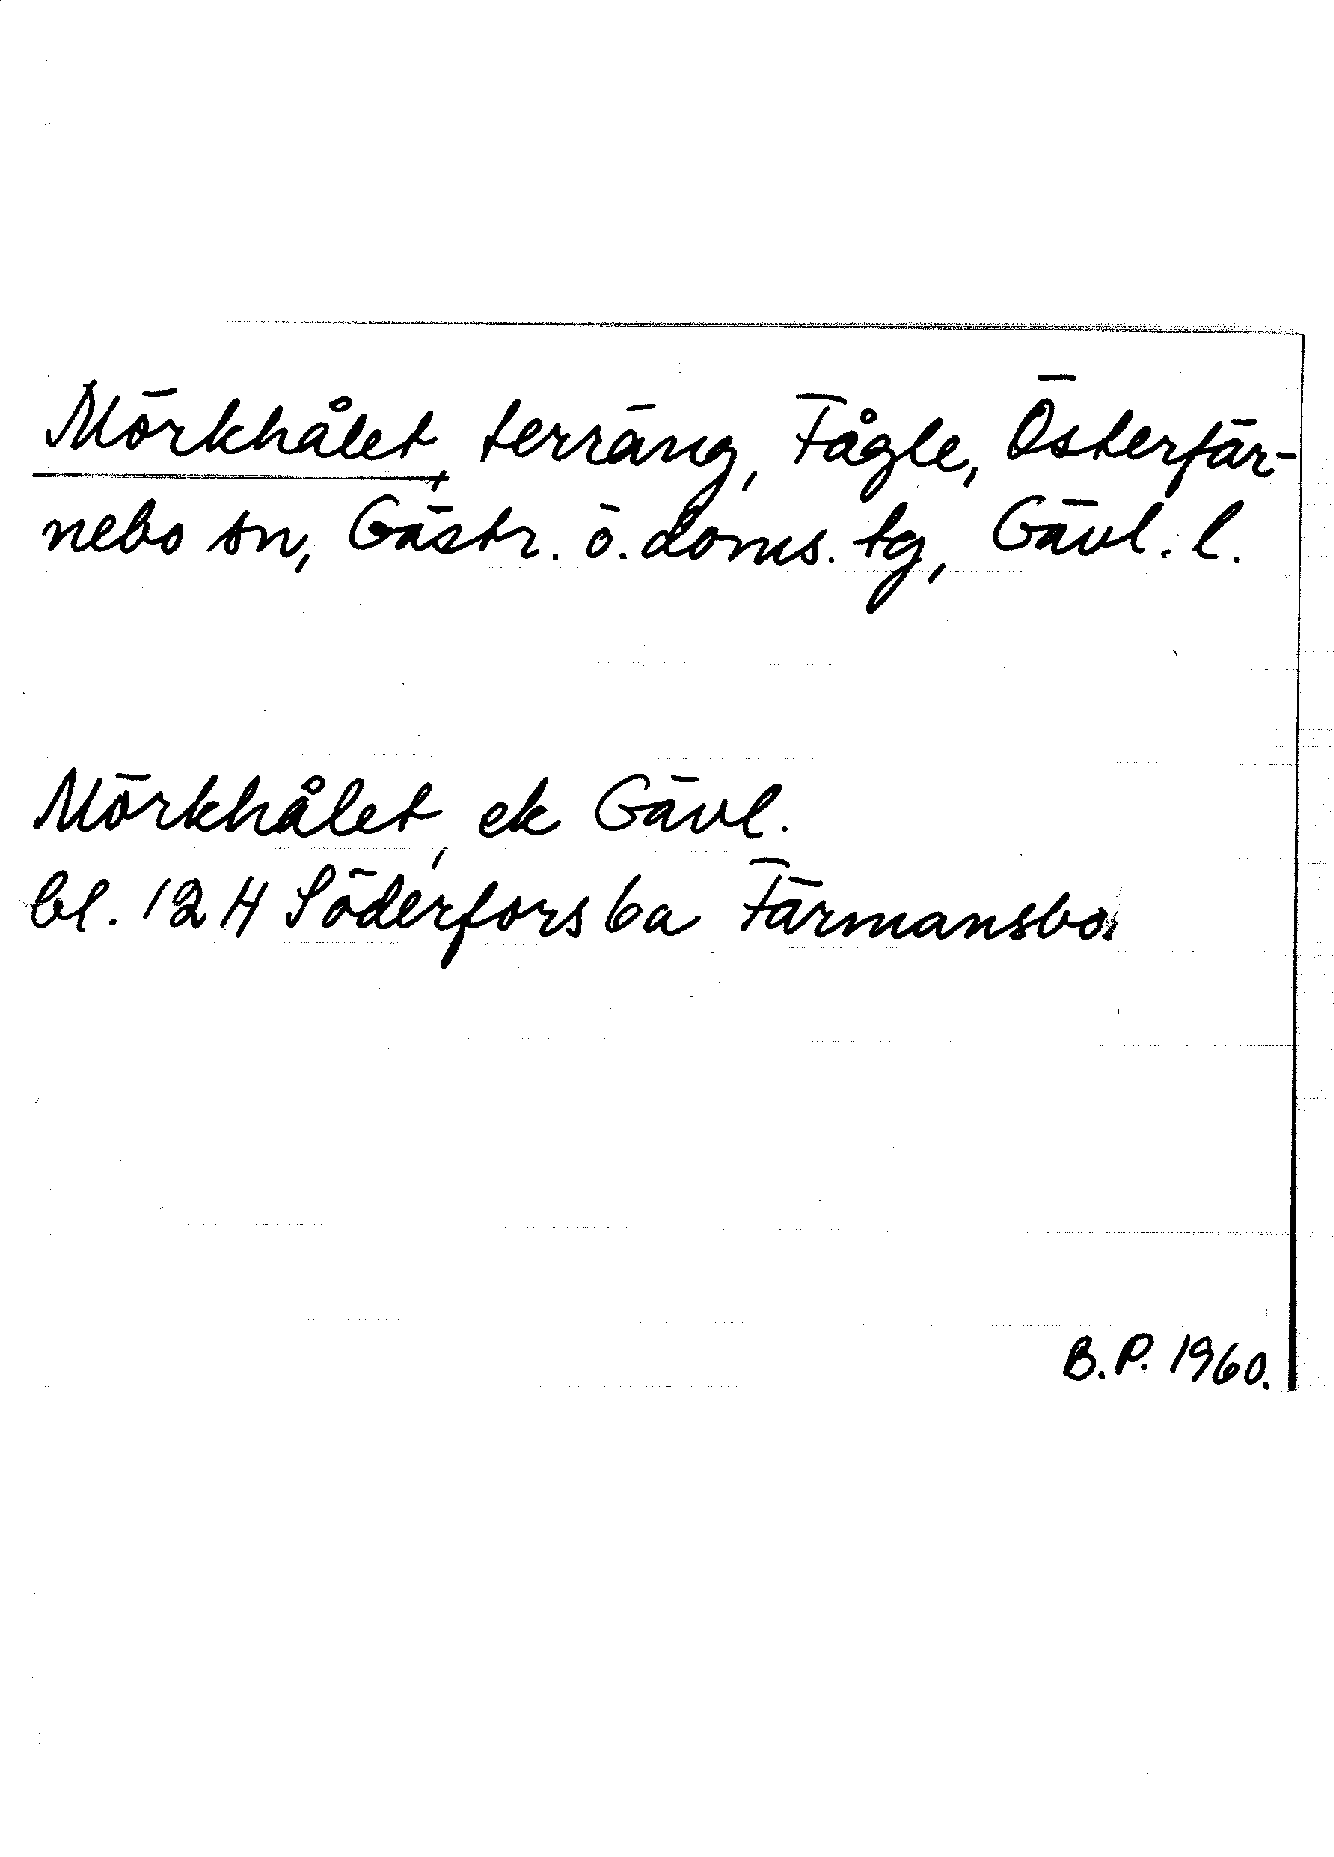 Mörkhålet, terräng, Fågle, Österfär-
nebo sn, Gästr. ö. doms. tg, Gävl. l.
Mörkhålet, ek Gävl.
bl. 12 H Söderfors 6a Färmansbo.
B.P. 1960.